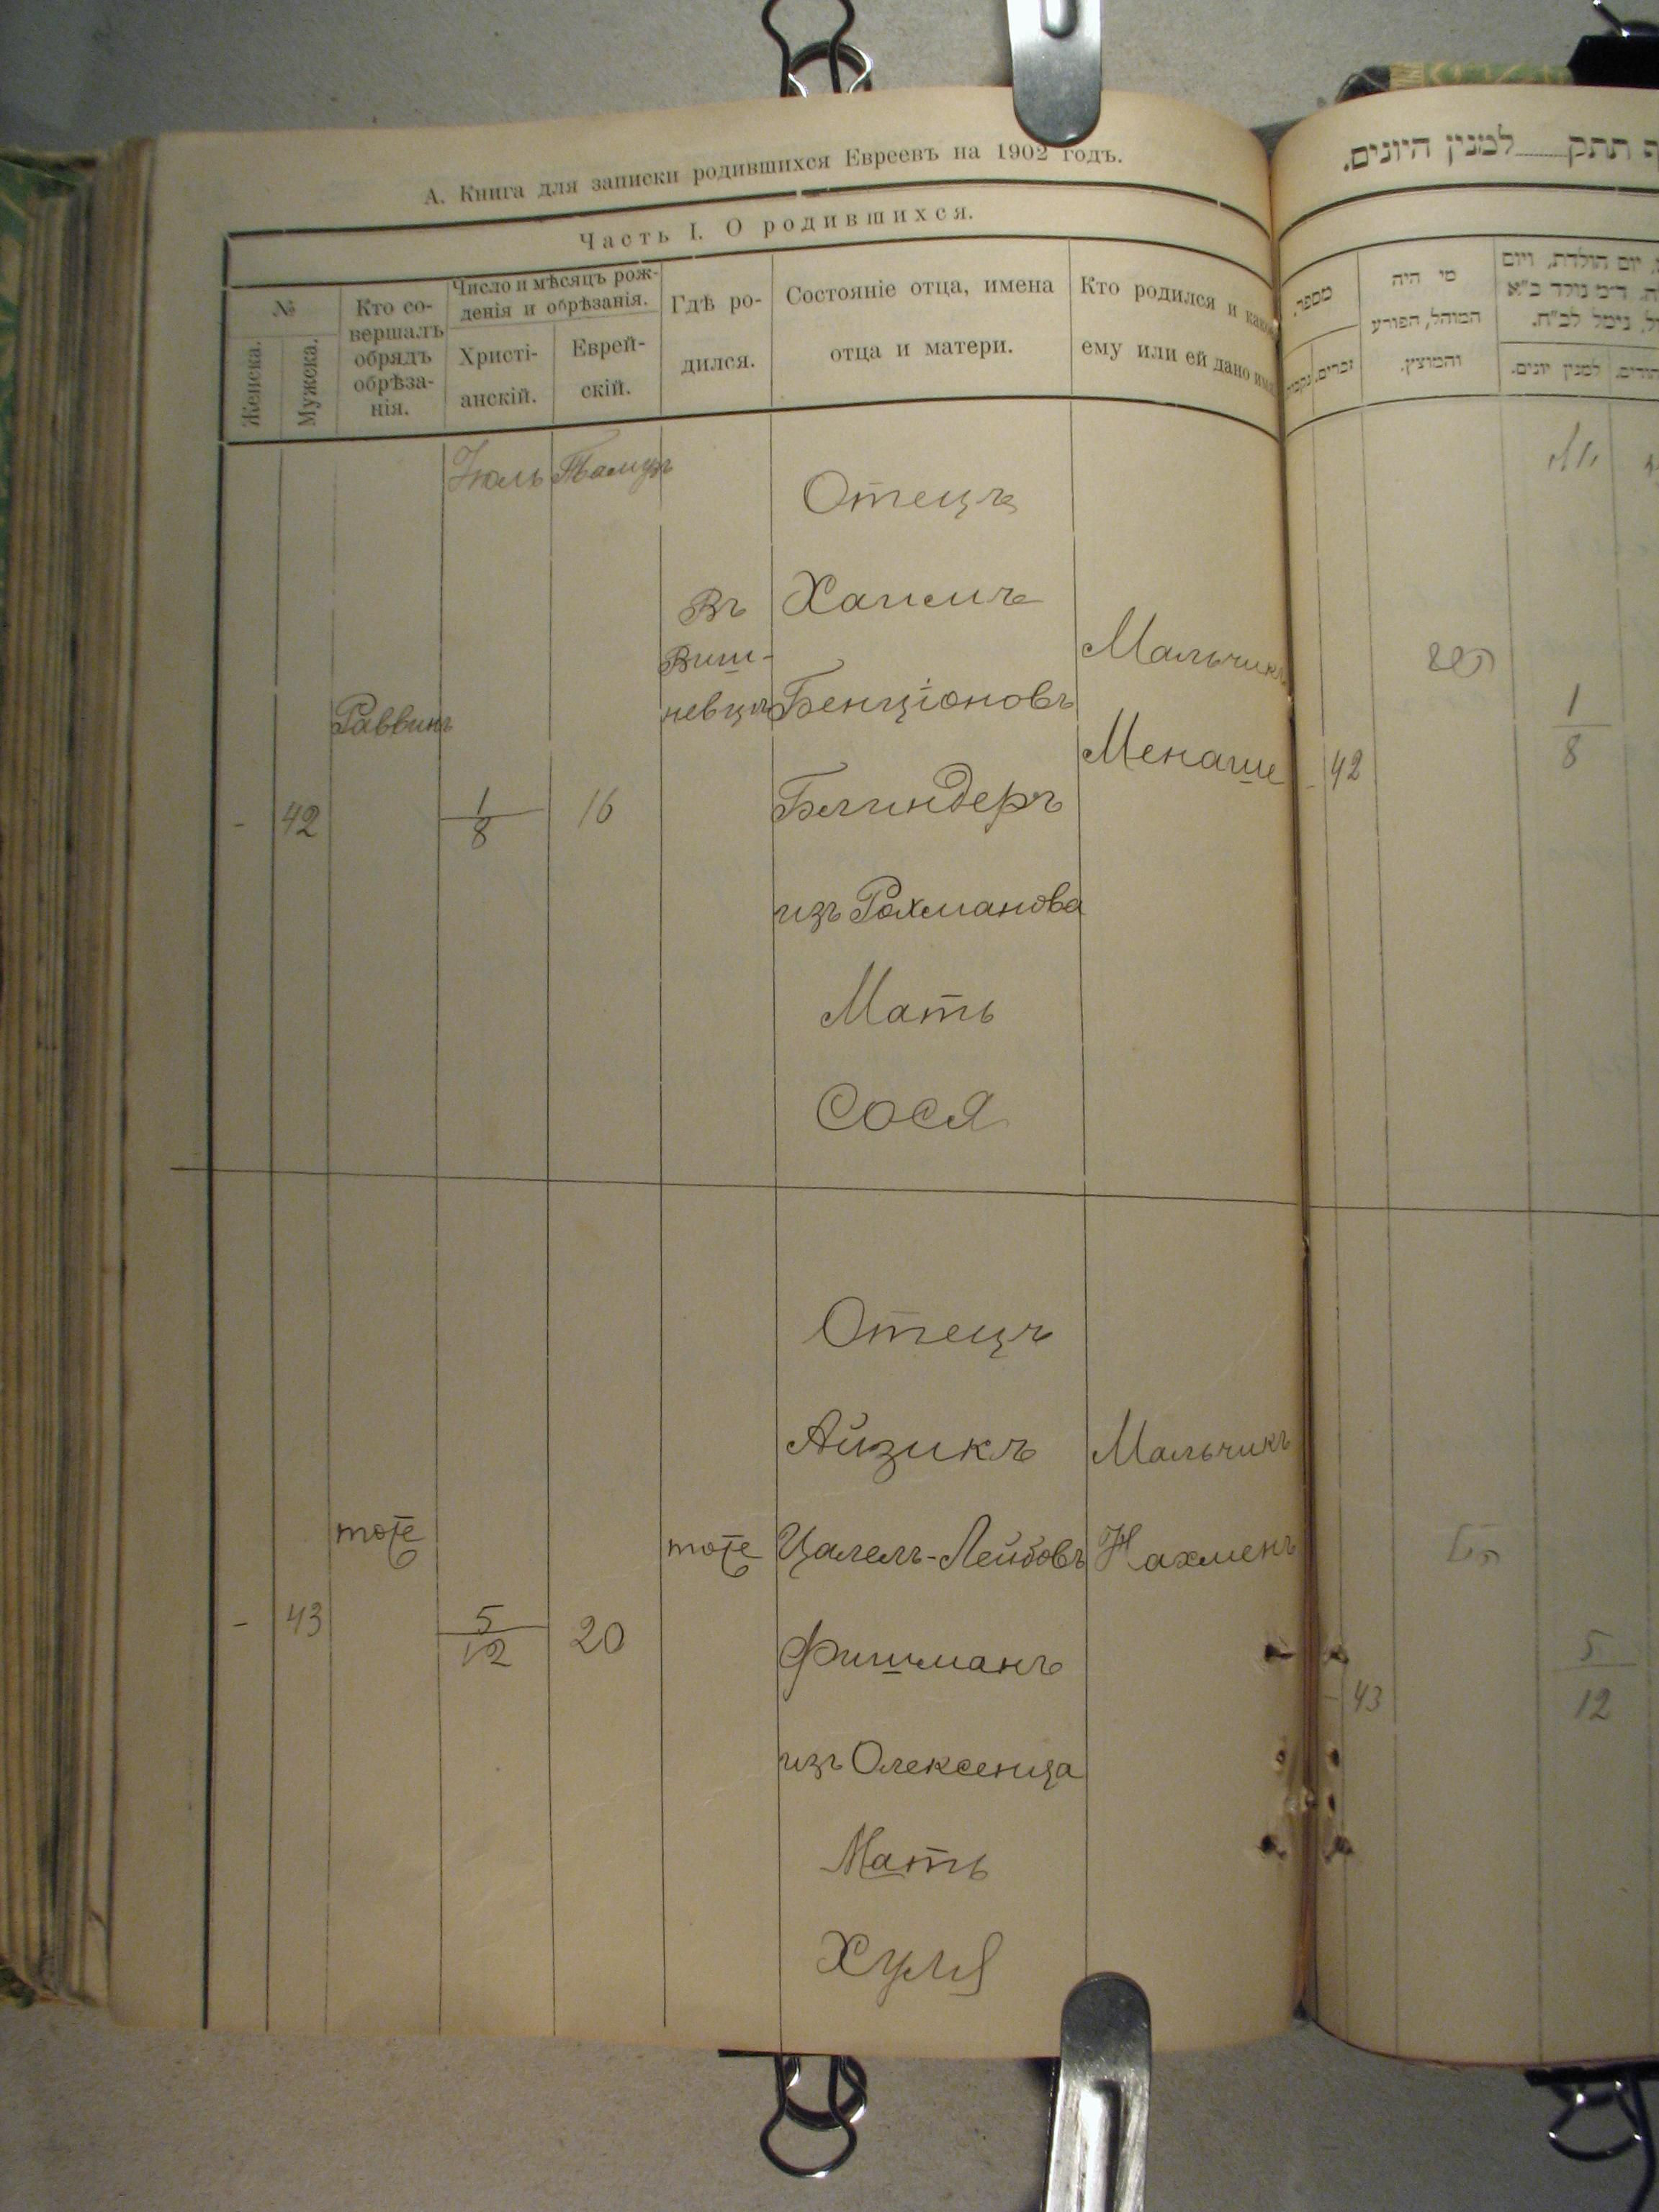 А. Книга для записки родившихся Евреевъ на 1902 годъ.
Часть I. О родившихся.
№
Женска.
Мужска.
Кто со-
вершалъ
обрядъ
обрѣза-
нія.
Число и мѣсяцъ рож-
денія и обрѣзанія.
Христі-
анскій.
Еврей-
скій.
Гдѣ ро-
дился.
Состояніе отца, имена
отца и матери.
Кто родился и какое
ему или ей дано имя
Іюль
Тамузъ
-
42
Раввинъ
1
8
16
Въ
Виш-
невцѣ
Отецъ
Хаимъ
Бенціоновъ
Блиндеръ
изъ Рохманова
Мать
Сося
Мальчикъ
Менаше
-
43
тоже
5
12
20
тоже
Отецъ
Айзикъ
Цалелъ-Лейбовъ
Фишманъ
изъ Олексенца
Мать
Хуля
Мальчикъ
Нахменъ
תתק למנין היונים.
מספר.
זכרים.
מי היה
המוהל, הפורע
והמוצץ.
יום הולדת, ויום
ד״מ נולד ב״א
נימל לב״ח.
למנין יונים.
-
42
1
8
-
43
הנ״ל
5
12